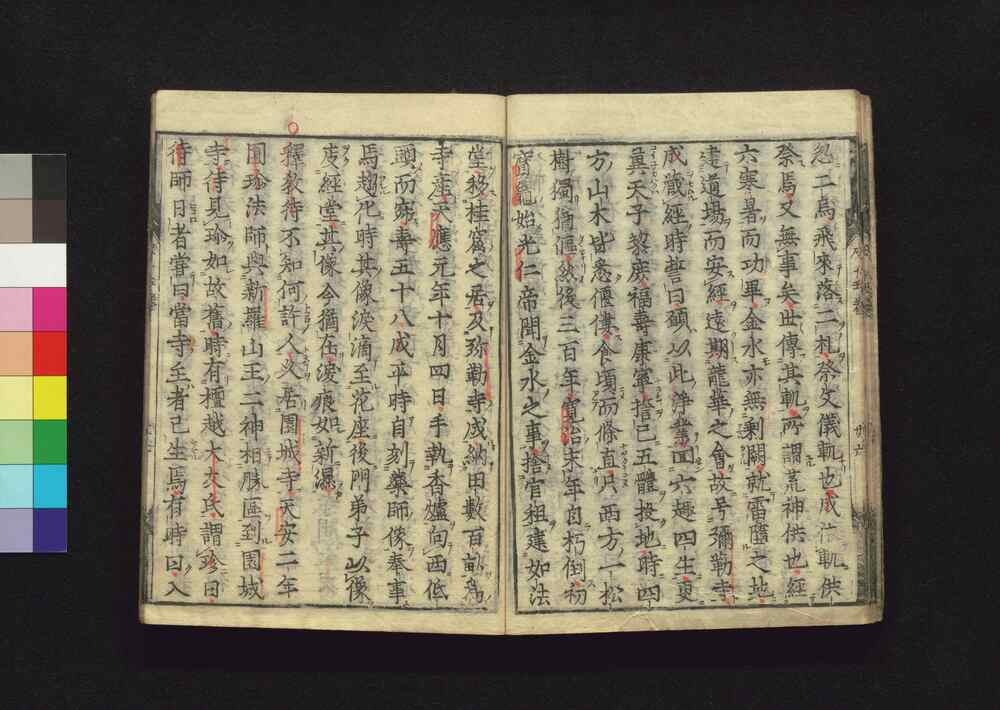 忽二烏飛來落二札祭文儀軌也成依軌供
祭焉又無事矣世傳其軌所謂荒神供也經
六寒暑而功畢金水亦無剩闕就雷墮之地
建道場而安經遠期龍華之會故号彌勒寺
成藏經時誓曰願以此淨業囬六趣四生更
冀天子黎庶福壽康寧擔已五體投地時四
方山木皆悉僵僂食頃而條直只西方一松
樹獨猶傴然後三百年寛治末年自朽倒初
寳龜始光仁帝聞金水之事捨官租建如法
堂移桂窟之居及弥勒寺成納田數百畝為
寺產天應元年十月四日手執香爐向西低
頭而寂壽五十八成平時自刻藥師像奉事
焉趨化時其像淚滴至花座後門弟子以像
庋經堂其像今猶在淚痕如新濕
釋敎待不知何許人久居園城寺天安二年
圓珍法師與新羅山王二神相勝區到園城
寺待見珍如故舊時有檀越大友氏謂珍曰
待師日者嘗曰當寺主者已生焉有時曰入